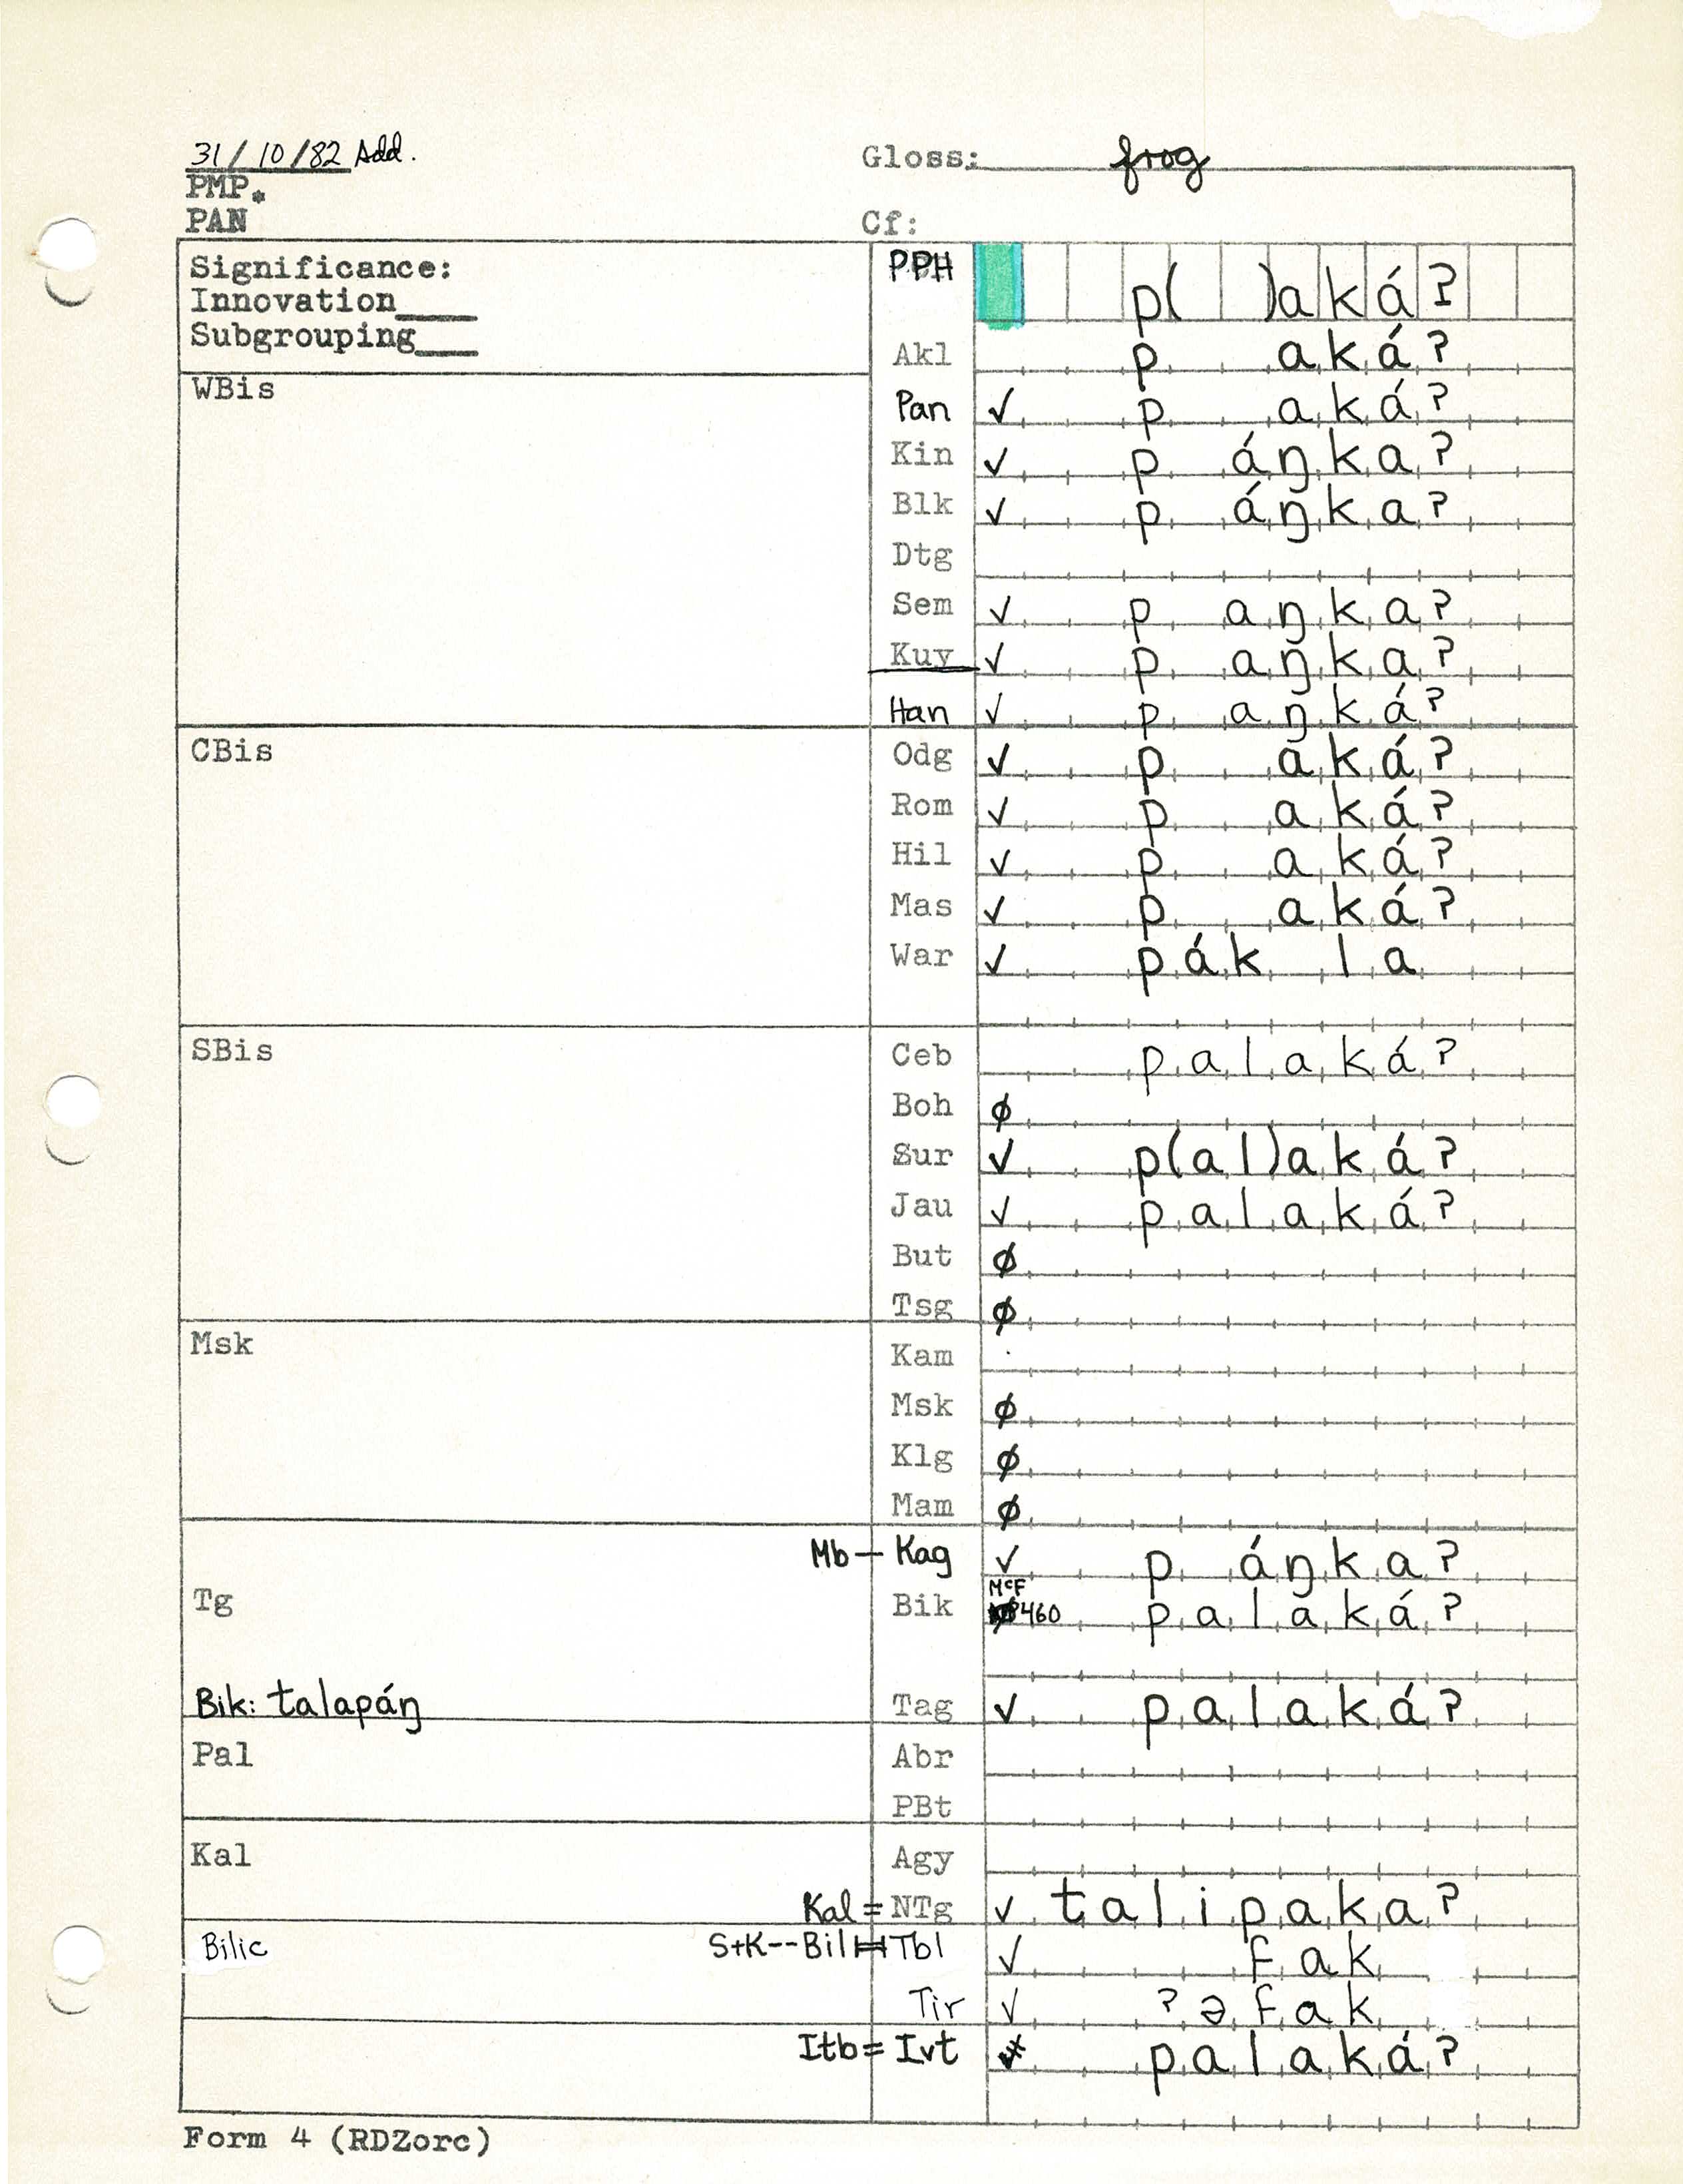 31/10/82 Add.
Gloss: frog
PMP*
PAN
Cf:
Significance:
PPH p( )aká?
Innovation____
Subgrouping___
Akl p aká?
WBis
Pan ✓ p aká?
Kin ✓ p áŋka?
Blk ✓ p áŋka?
Dtg
Sem ✓ p aŋka?
Kuy ✓ p aŋka?
Han ✓ p aŋká?
CBis
Odg ✓ p aká?
Rom ✓ p aká?
Hil ✓ p aká?
Mas ✓ p aká?
War ✓ pák la
SBis
Ceb palaká?
Boh ∅
Sur ✓ p(al)aká?
Jau ✓ palaká?
But ∅
Tsg ∅
Msk
Kam
Msk ∅
Klg ∅
Mam ∅
Mb — Kag ✓ p áŋka?
Tg
Bik McF 460 palaká?
Bik: talapáŋ
Tag ✓ palaká?
Pal
Abr
PBt
Kal
Agy
Kal = NTg ✓ talipaka?
Bilic
S+K--Bil Tbl ✓ fak
Tir ✓ ?əfak
Itb = Ivt palaká?
Form 4 (RDZorc)